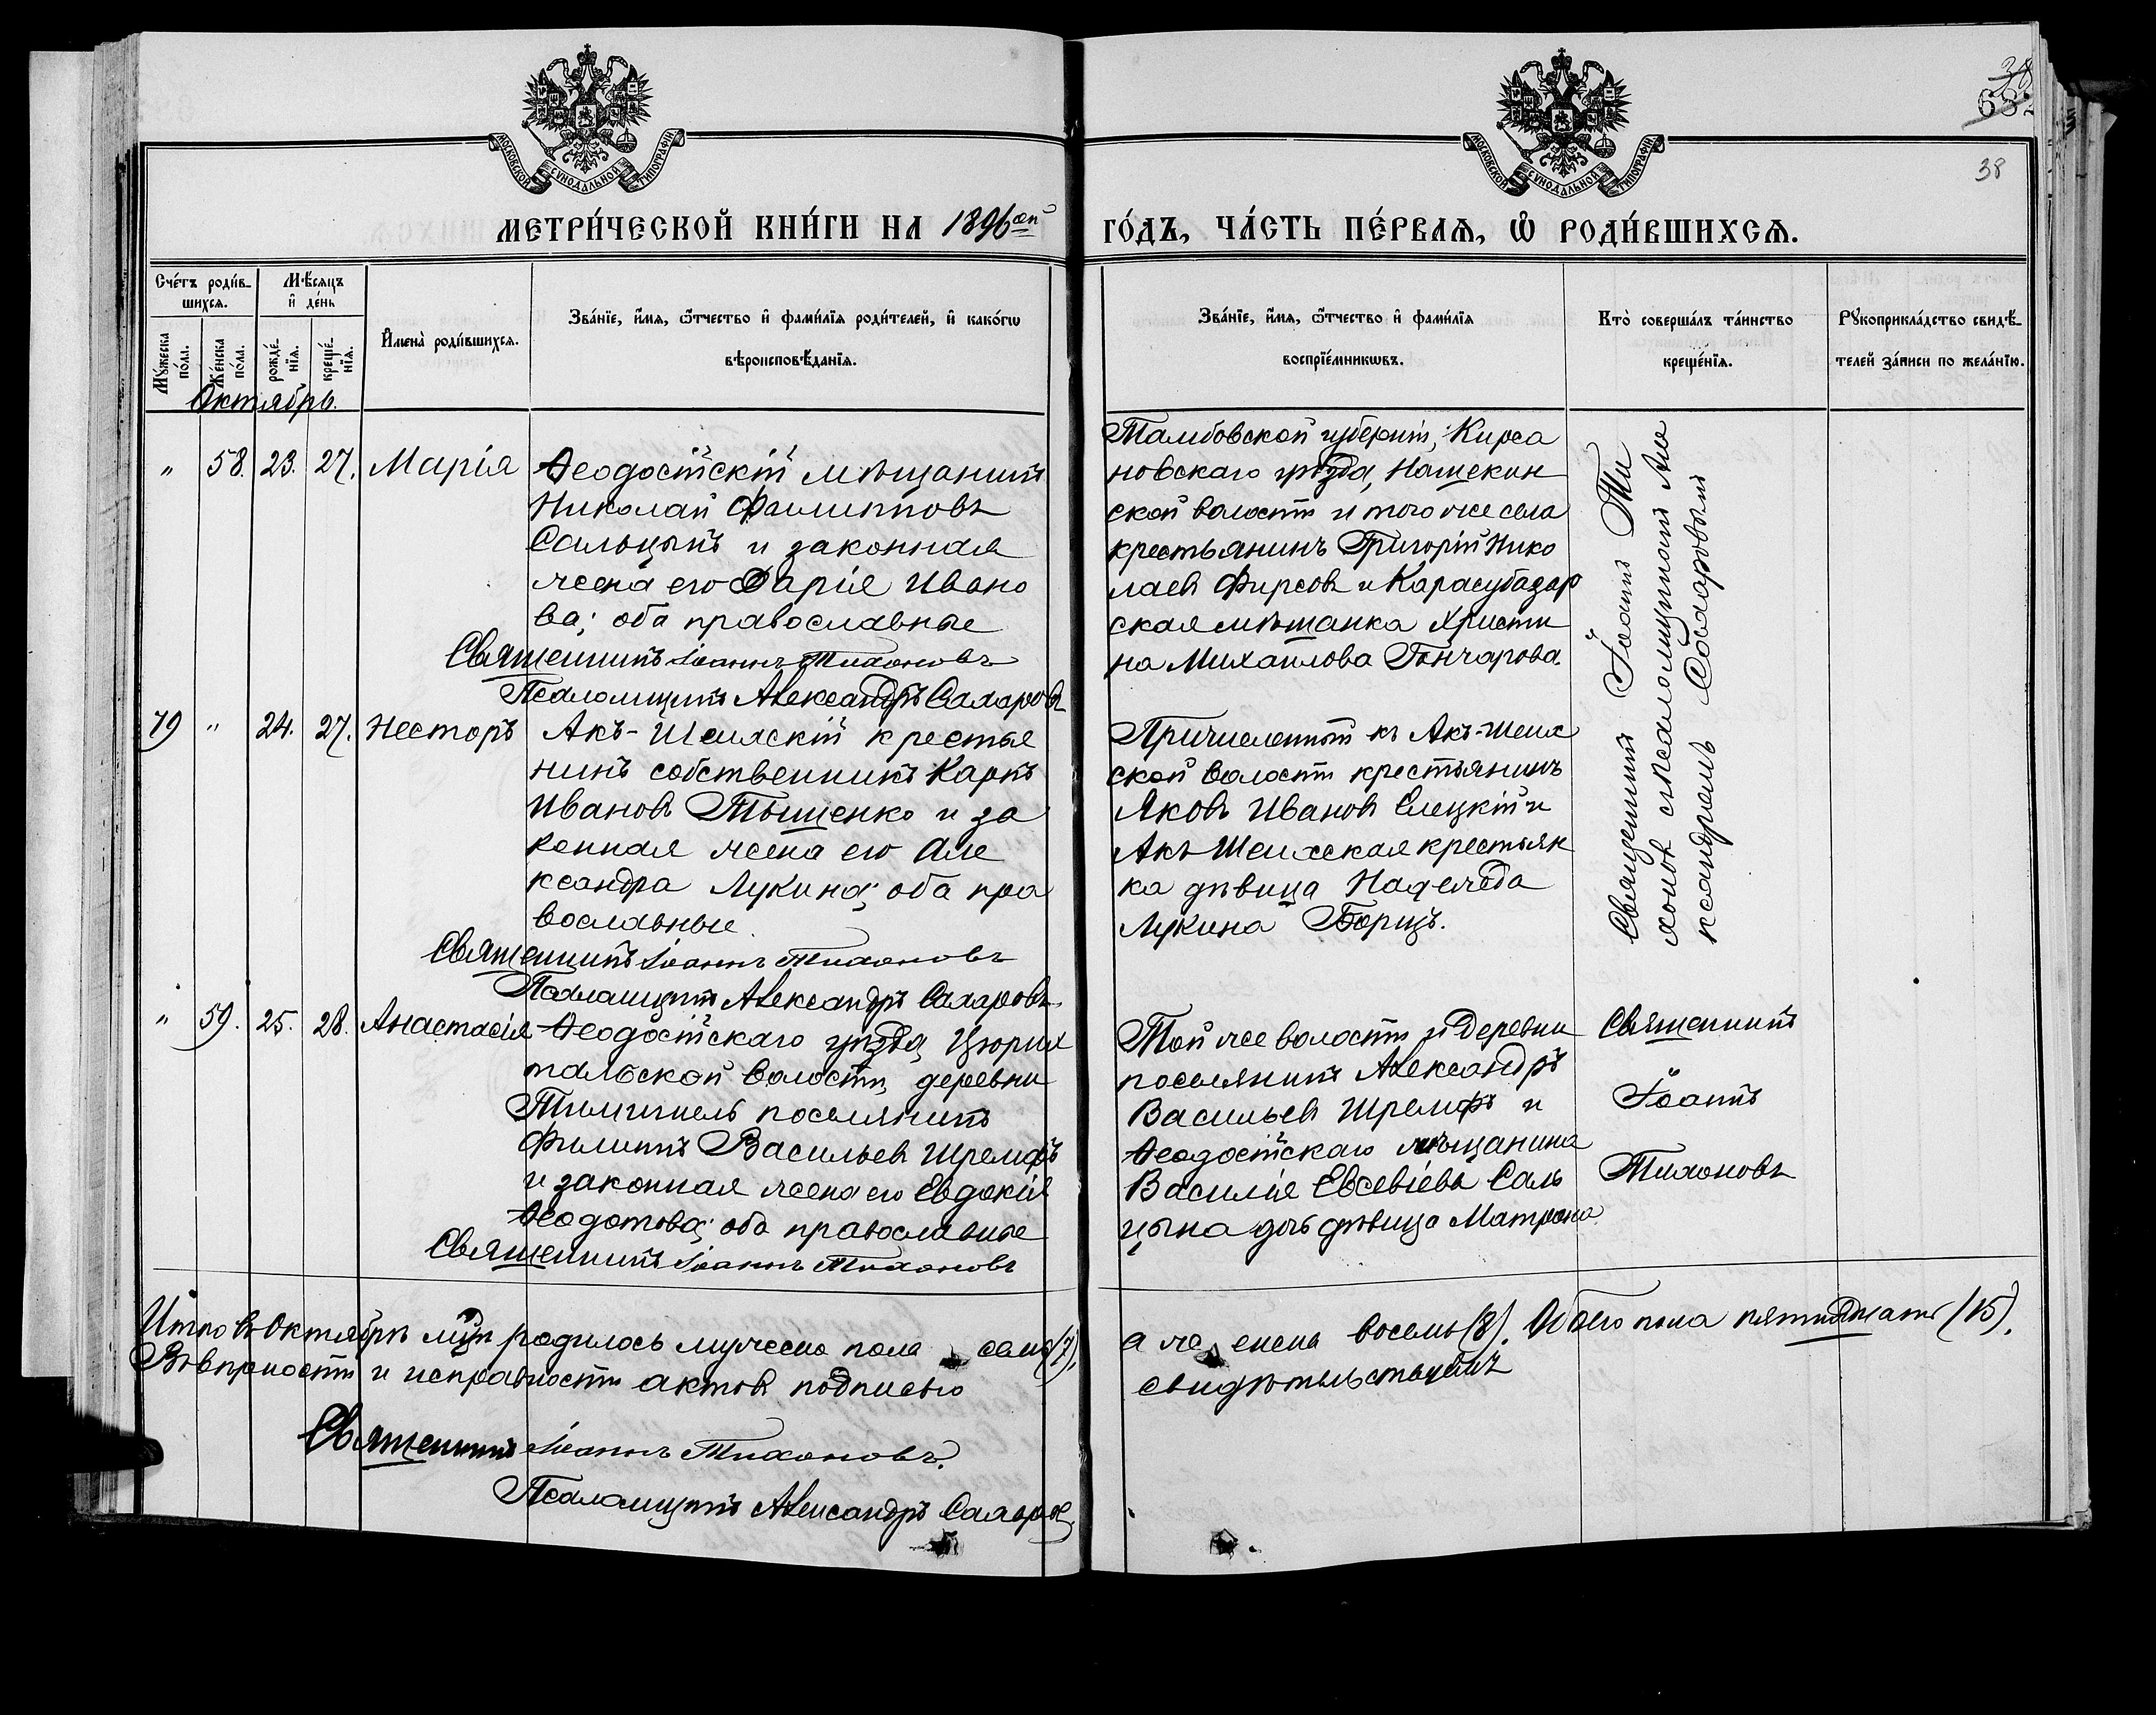 38
682
38
МОСКОВСКОЙ СѴНОДАЛЬНОЙ ТИПОГРАФІИ.
МОСКОВСКОЙ СѴНОДАЛЬНОЙ ТИПОГРАФІИ.
МЕТРИ́ЧЕСКОЙ КНИ́ГИ НА 1896ой
ГО́ДЪ, ЧА́СТЬ ПЕ́РВАѦ, Ѡ҆ РОДИ́ВШИХСѦ.
Сче́тъ роди́в-
шихсѧ.
Мѣ́сѧцъ
и҆ де́нь
Мꙋ́жеска
по́ла.
Же́нска
по́ла.
рожде́-
нїѧ.
креще́-
нїѧ.
И҆мена̀ роди́вшихсѧ.
Зва́нїе, и҆́мѧ, ѻ҆́тчество и҆ фами́лїѧ роди́телей, и҆ како́гѡ
вѣроисповѣ́данїѧ.
Зва́нїе, и҆́мѧ, ѻ҆́тчество и҆ фами́лїѧ
воспрїе́мникѡвъ.
Кто̀ соверша́лъ та́инство
креще́нїѧ.
Рꙋкоприкла́дство свидѣ́-
телей за́писи по жела́нїю.
Октябрь.
" 58. 23. 27. Марія Ѳеодосійскій мѣщанинъ
Николай Филипповъ
Сальцынъ и законная
жена его Дарія Ивано
ва; оба православные
Священникъ Іоаннъ Тихоновъ
Псаломщикъ Александръ Сахаровъ
Тамбовской губерніи, Кирса
новскаго уѣзда, Нащекин
ской волости и того же села
крестьянинъ Григорій Нико
лаевъ Фирсовъ и Карасубазар
ская мѣщанка Христи
на Михаилова Гончарова.
Священникъ Іоаннъ Ти
хоновъ съ псаломщикомъ Але
ксандромъ Сахаровымъ
79 " 24. 27. Несторъ Акъ-Шеихскій крестья
нинъ собственникъ Карпъ
Ивановъ Тыщенко и за
конная жена его Але
ксандра Лукина; оба пра
вославные.
Священникъ Іоаннъ Тихоновъ
Псаломщикъ Александръ Сахаровъ
Причисленный къ Акъ-Шеих
ской волости крестьянинъ
Яковъ Ивановъ Елецкій и
Акъ-Шеихская крестьян
ка дѣвица Надежда
Лукина Борщъ.
" 59. 25. 28. Анастасія Ѳеодосійскаго уѣзда Цюрих
тальской волости, деревни
поселянинъ
Филиппъ Васильевъ Шремфъ
и законная жена его Евдокія
Ѳеодотова; оба православные
Священникъ Іоаннъ Тихоновъ
Той же волости и деревни
поселянинъ Александръ
Васильевъ Шремфъ и
Ѳеодосійскаго мѣщанина
Василія Евсевіева Саль
цына дочь дѣвица Матрона.
Священникъ
Іоаннъ
Тихоновъ
Итого въ Октябрѣ мцѣ родилось мужеска пола семь (7),
а женска восемь (8). Обоего пола пятнадцать (15).
Въ вѣрности и исправности актовъ подписью
свидѣтельствуемъ
Священникъ Іоаннъ Тихоновъ.
Псаломщикъ Александръ Сахаровъ